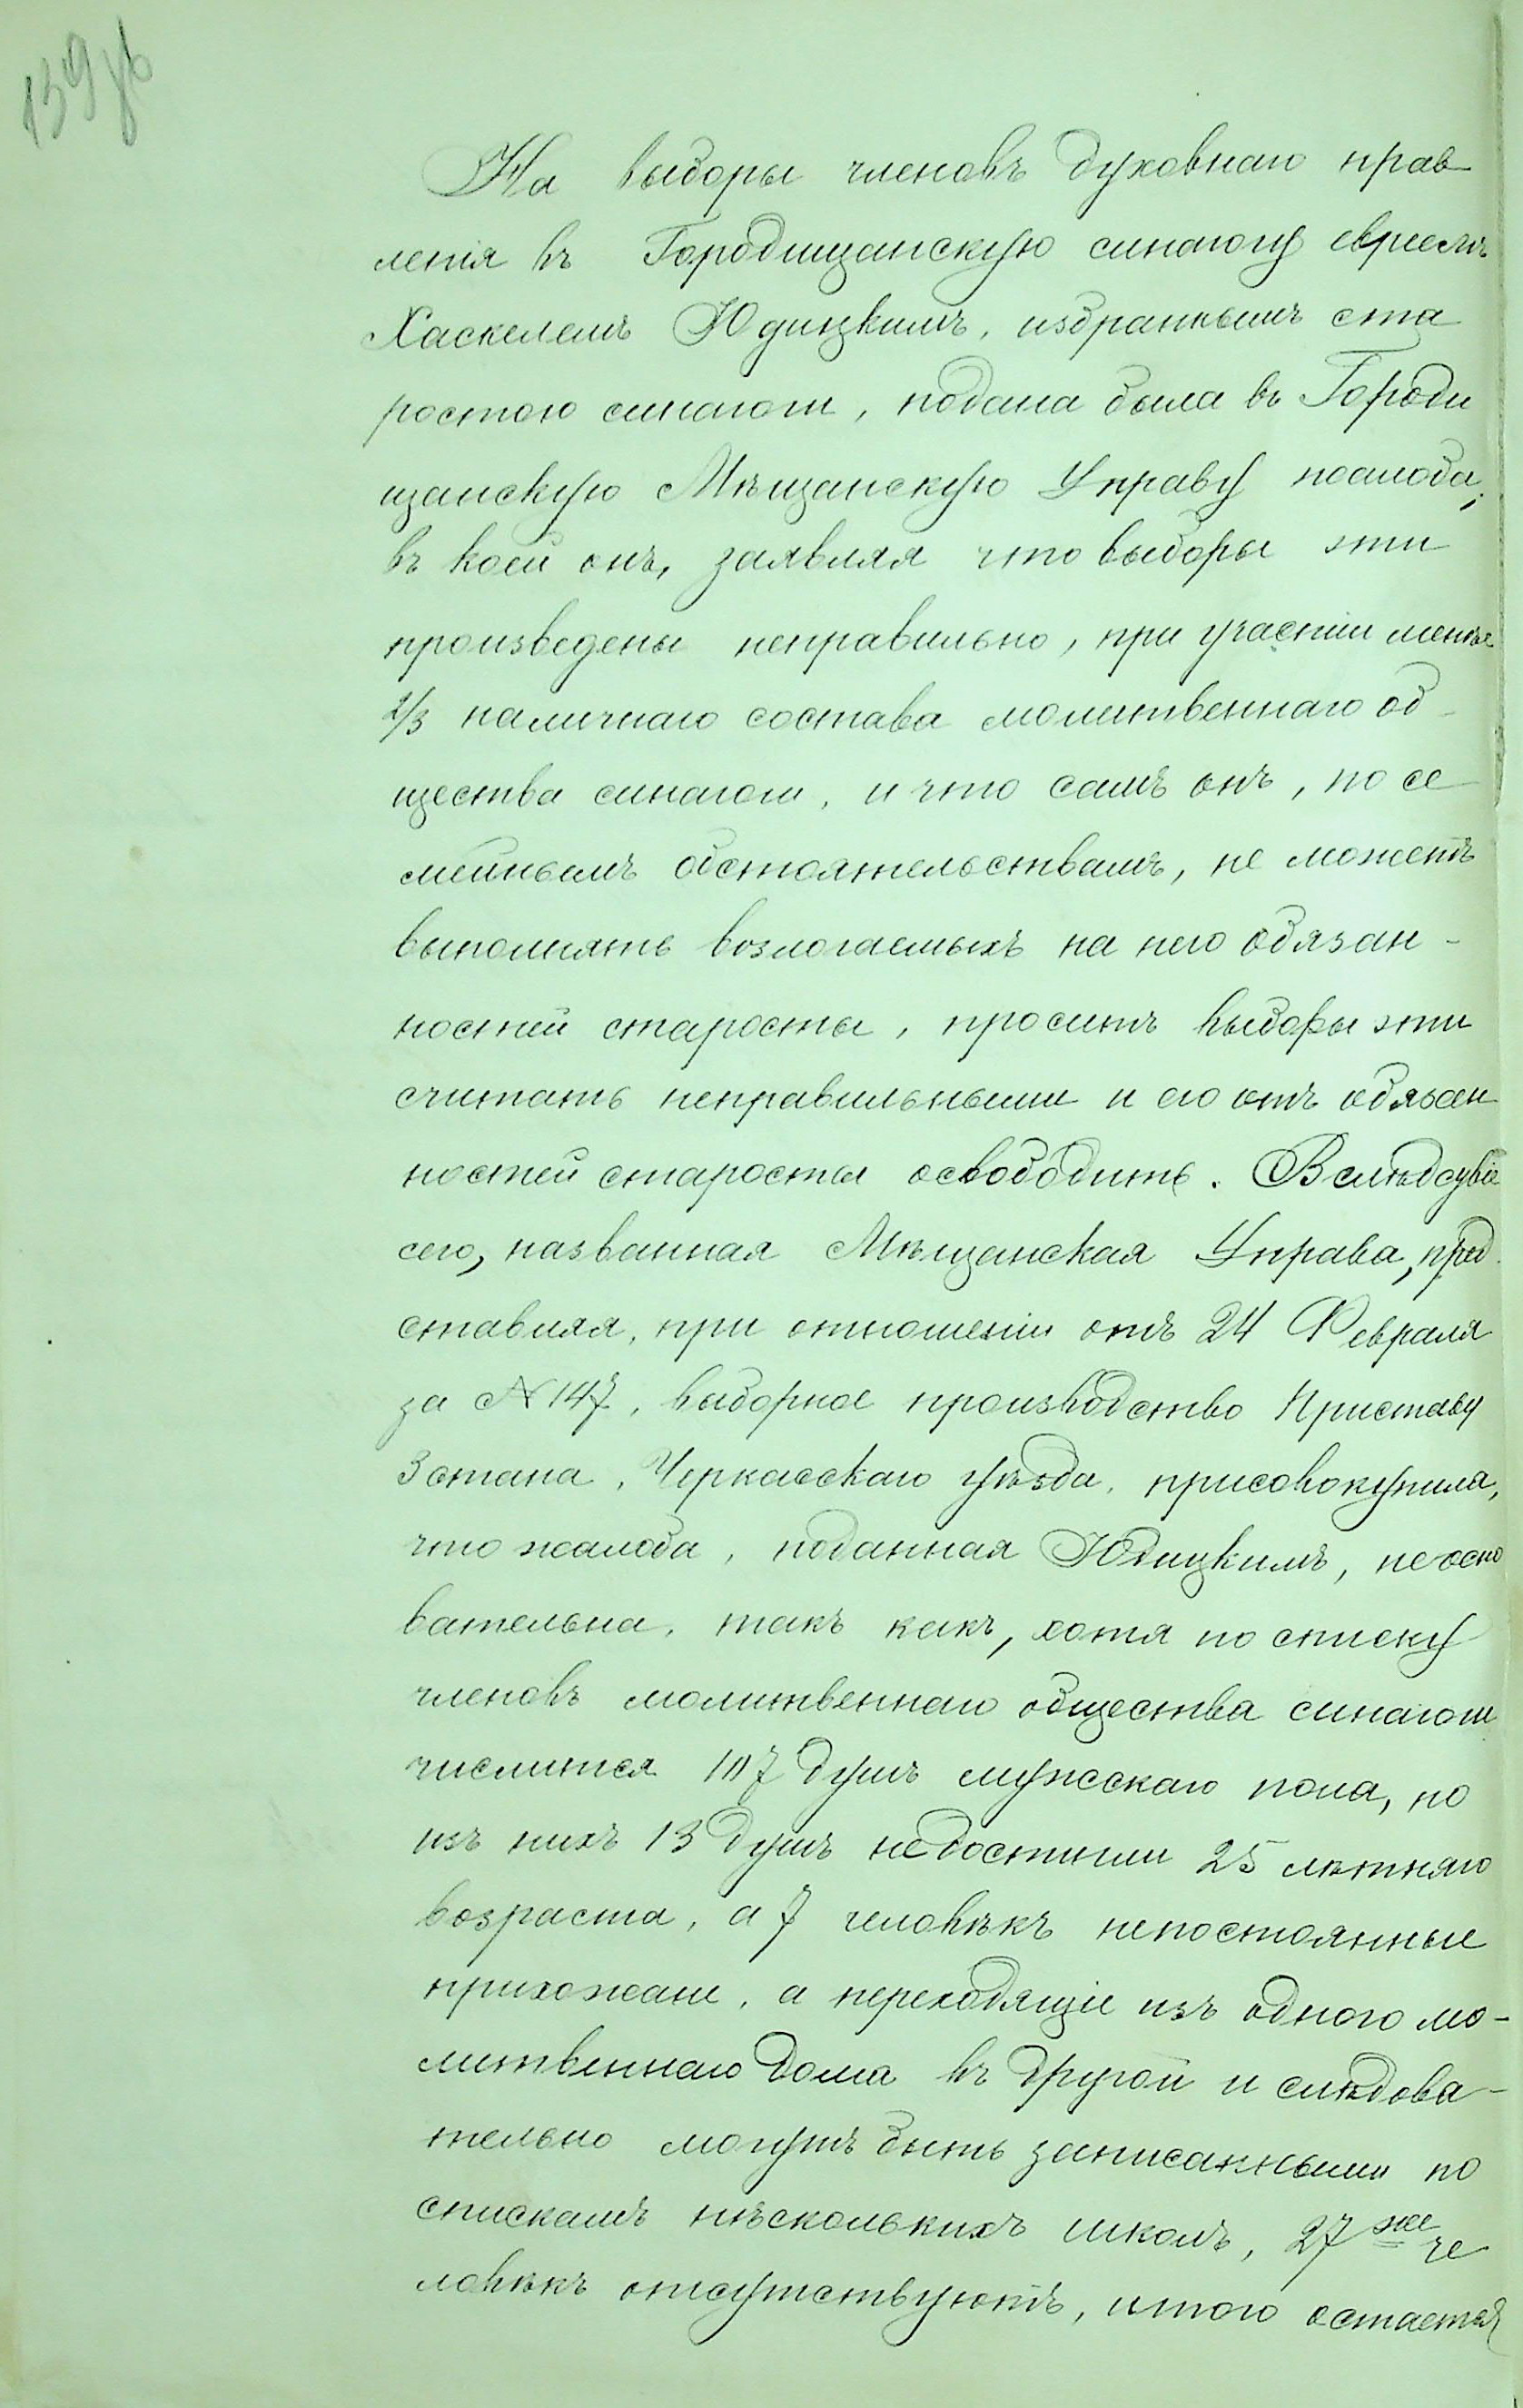 139 об
На выборы членовъ духовнаго прав
ленія въ Городищанскую синагогу евреемъ
Хаскелемъ Юдицкимъ, избраннымъ ста
ростою синагоги, подана была въ Городи
щанскую Мѣщанскую Управу жалоба,
въ коей онъ, заявляя что выборы эти
произведены неправильно, при участіи менѣе
2/3 наличнаго состава молитвеннаго об-
щества синагоги, и что самъ онъ, по се
мейнымъ обстоятельствамъ, не можетъ
выполнять возлогаемыхъ на него обязан-
ностей старосты, проситъ выборы эти
считать неправильными и его отъ обязан
ностей старосты освободить. Вслѣдсувіе
сего, названная Мѣщанская Управа, пред
ставляя, при отношеніи отъ 24 Февраля
за № 147, выборное производство Приставу
3 стана, Черкасскаго уѣзда, присовокупила,
что жалоба, поданная Юдицкимъ, неосно
вательна, такъ какъ, хотя по списку
членовъ молитвеннаго общества синагоги
числится 117 душъ мужескаго пола, но
изъ нихъ 13 душъ недостигли 25 лѣтняго
возраста, а 7 человѣкъ непостоянные
прихожане, а переходящіе изъ одного мо-
литвеннаго дома въ другой и слѣдова-
тельно могутъ быть записанными по
спискамъ нѣсколькихъ школъ, 27 же че
ловѣкъ отсутствуютъ, итого остается